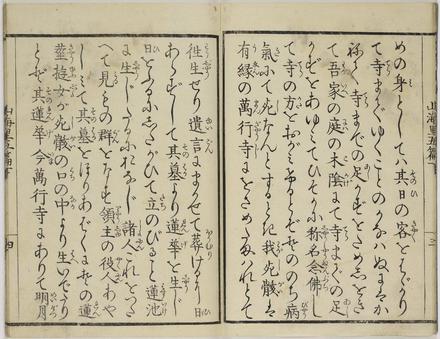 めの身としてハ其日の客をはゞかり
て寺までゆくことのかなハぬまゝにか
ねて寺までの足かずをためしをき
て吾家の庭の木陰まて寺までの足
かずをあゆミてひそかに称名念佛し
て寺の方をおがミ居るとぞそののち病
氣にて死なんとするとき我死骸ハ
有縁の萬行寺にをさめ給ハれとて
徃生せり遺言にまかせて葬けるに日
あらずして其墓より蓮華を生じ
日をふるにしたがひて立のびること蓮池
に生じたるにかハらず諸人これをつた
へて見るもの群をなせバ領主の役人あや
しミて其墓をほりあばくにその蓮
華遊女が死骸の口の中より生いでたり
とぞ其蓮華今萬行寺にありて明月
山海里五篇下
三
四